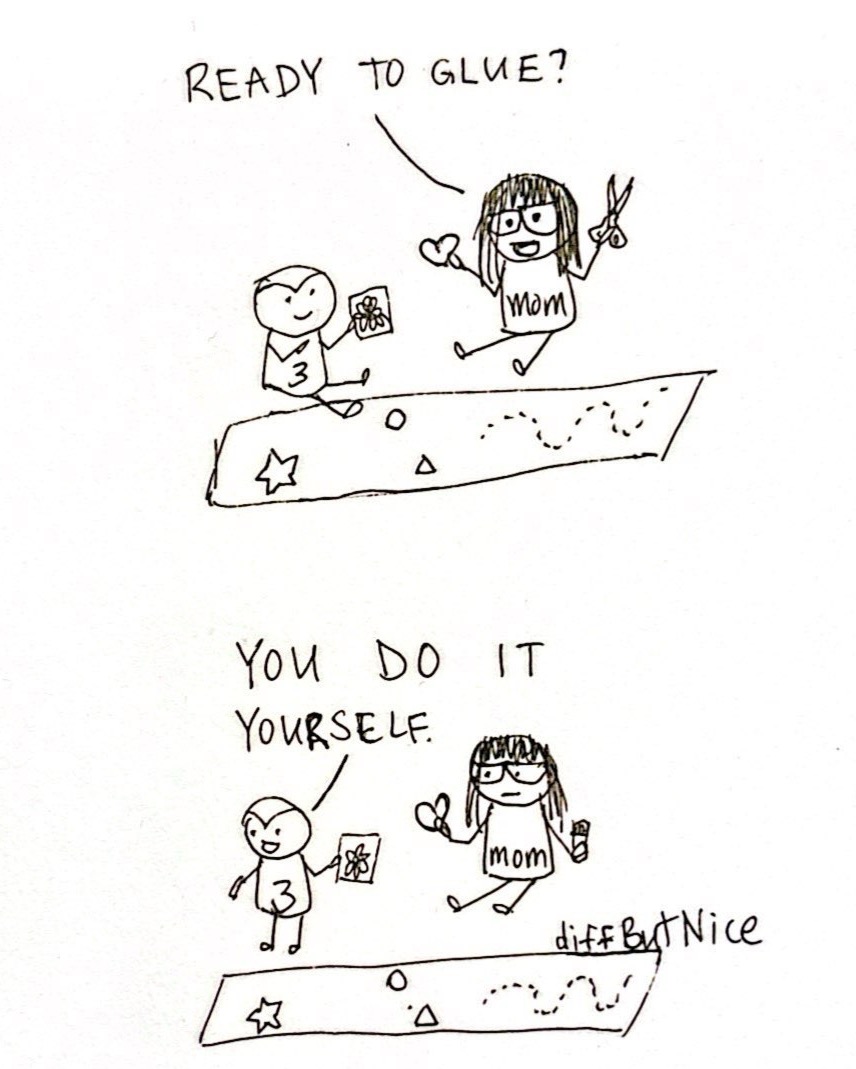 READY TO GLUE?
mom
3
YOU DO IT
YOURSELF.
mom
3
diffButNice